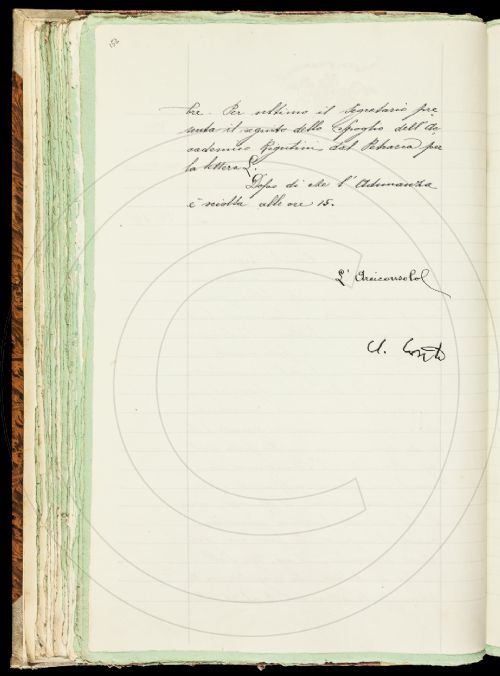 bre. Per ultimo il Segretario pre
senta il seguito dello Spoglio dell'Ac
cademico Rigutini dal Petrarca per
la lettera L.
Dopo di che l'Adunanza
è sciolta alle ore 15.
L'Arciconsolo